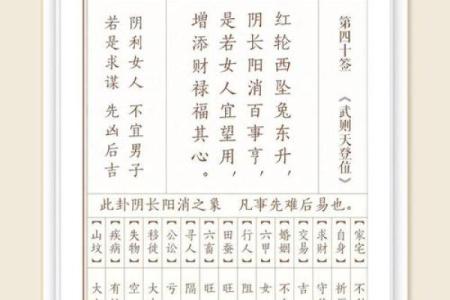 第四十签 《武则天登位》
红轮西坠兔东升,
阴长阳消百事亨,
是若女人宜望用,
增添财禄福其心。
阴利女人 不宜男子
若是求谋 先凶后吉
此卦阴长阳消之象 凡事先难后易也。
【家宅】不
【自身】
【求财】守
【交易】吉
【婚姻】不
【六甲】女
【行人】阻
【田蚕】旺
【六畜】旺
【寻人】隔
【公讼】亏
【移徙】大
【失物】空
【疾病】有
【山坟】大